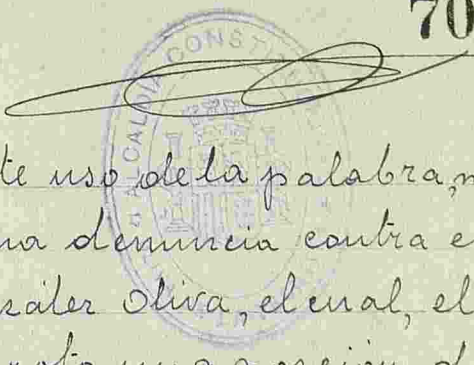 70
ALCALDIA CONSTIT
te uso de la palabra, n
na denuncia contra e
ráler Oliva, el cual, el